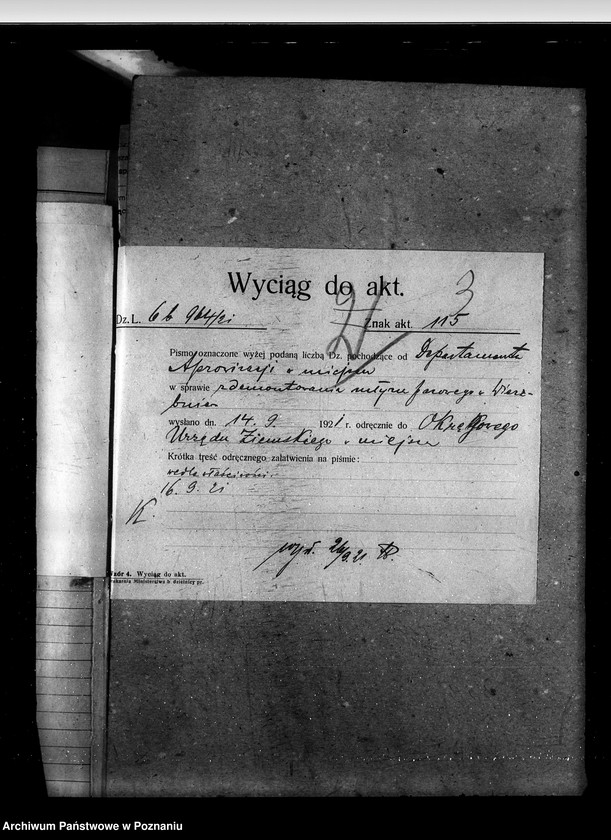 Wyciąg do akt.
3
2
Dz. L. 6b 964/21
Znak akt. 115
Pismo oznaczone wyżej podaną liczbą Dz. pochodzące od Departamentu
Aprowizacji w miejscu
w sprawie zdemontowania młyna parowego w Wierz-
bniu
wysłano dn. 14.9. 1921 r. odręcznie do Okręgowego
Urzędu Ziemskiego w miejscu
Krótka treść odręcznego załatwienia na piśmie:
wedle właściwości
16.9.21
K.
9.21
Wzór 4. Wyciąg do akt.
Drukarnia Ministerstwa b. dzielnicy pr.
Archiwum Państwowe w Poznaniu